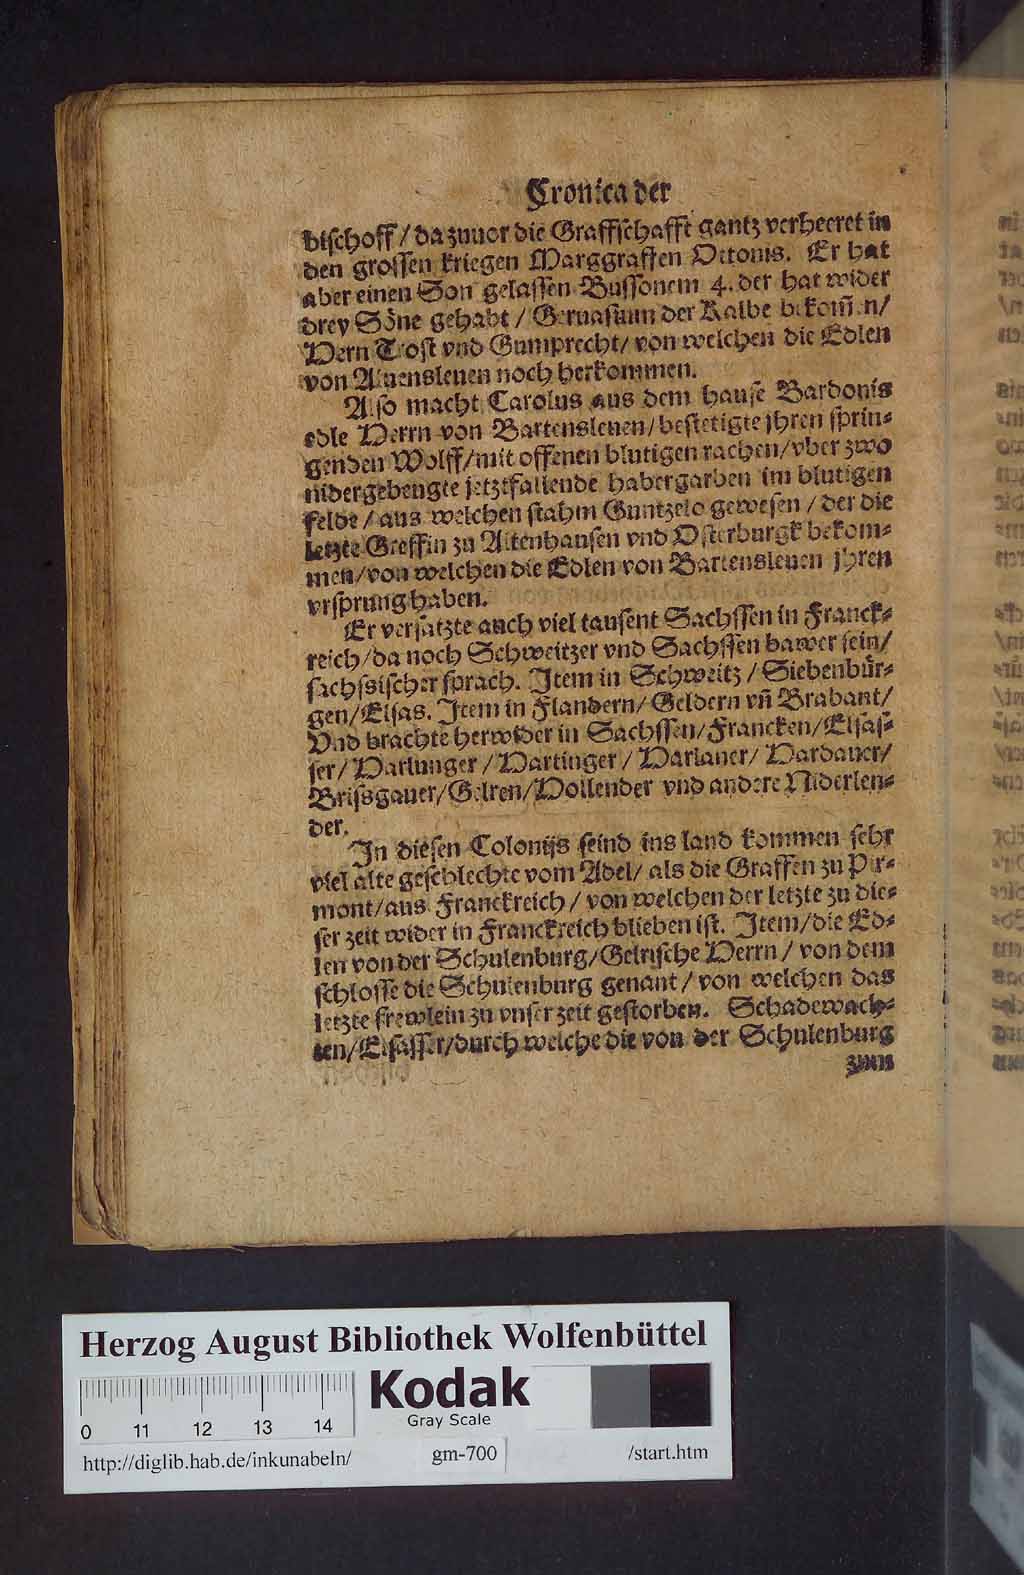 Cronica der
bischoff / da zuuor die Graffschafft gantz verheeret in
den grossen kriegen Marggraffen Ottonis. Er hat
aber einen Son gelassen Bussonem 4. der hat wider
drey Söne gehabt / Geruasium der Kalbe bekom̄en /
Hern Trost vnd Gumprecht / von welchen die Edlen
von Aluensleuen noch herkommen.
Also macht Carolus aus dem hause Bardonis
edle Herrn von Bartensleuen / bestetigte jhren sprin-
genden Wolff / mit offenen blutigen rachen / vber zwo
nidergebeugte jetztfallende habergarben im blutigen
felde / aus welchen stahm Guntzelo gewesen / der die
letzte Greffin zu Altenhausen vnd Osterburgk bekom-
men / von welchen die Edlen von Bartensleuen jhren
vrsprung haben.
Er versatzte auch viel tausent Sachssen in Franck-
reich / da noch Schweitzer vnd Sachssen bawer sein /
sachssischer sprach. Item in Schweitz / Siebenbür-
gen / Elsas. Item in Flandern / Geldern vn̄ Brabant /
Vnd brachte herwider in Sachssen / Francken / Elsas-
ser / Harlunger / Hartinger / Harlaner / Hardauer /
Brissgauer / Gelren / Hollender vnd andere Niderlen-
der.
In diesen Colonijs seind ins land kommen sehr
viel alte geschlechte vom Adel / als die Graffen zu Pir-
mont / aus Franckreich / von welchen der letzte zu die-
ser zeit wider in Franckreich blieben ist. Item / die Ed-
len von der Schulenburg / Gelrische Herrn / von dem
schlosse die Schulenburg genant / von welchen das
letzte frewlein zu vnser zeit gestorben. Schadewach-
ten / Elsasser / durch welche die von der Schulenburg
zum
Herzog August Bibliothek Wolfenbüttel
Kodak
Gray Scale
0 11 12 13 14
http://diglib.hab.de/inkunabeln/ gm-700 /start.htm